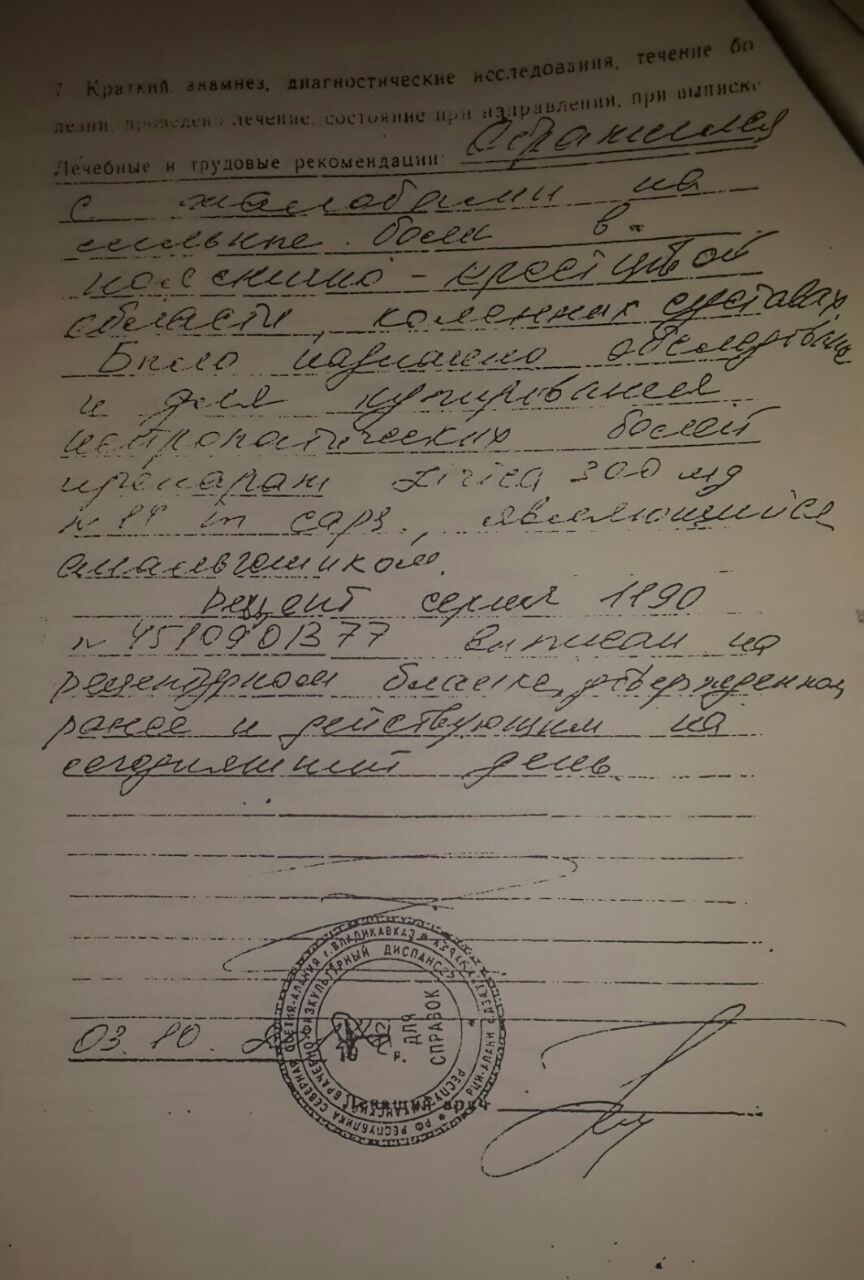 7 Краткий анамнез, диагностические исследования, течение бо
лезни, проведено лечение, состояние при направлении, при выписке
Лечебные и трудовые рекомендации: Обратился
с жалобами на
сильные боли в
пояснично-крестцовой
области, коленных суставах
Было назначено обследован
и для купирования
нейропатических болей
препарат Lirica 300 мд
n 84 in caps., являющийся
анальгетиком.
Рецепт серия 1190
n 45/0901377 выписан на
рецептурном бланке, утвержденном
ранее и действующим на
сегодняшний день.
03. 10.
РФ РЕСПУБЛИКА СЕВЕРНАЯ ОСЕТИЯ-АЛАНИЯ г.ВЛАДИКАВКАЗ
РЕСПУБЛИКАНСКИЙ ВРАЧЕБНО-ФИЗКУЛЬТУРНЫЙ ДИСПАНСЕР
ДЛЯ
СПРАВОК